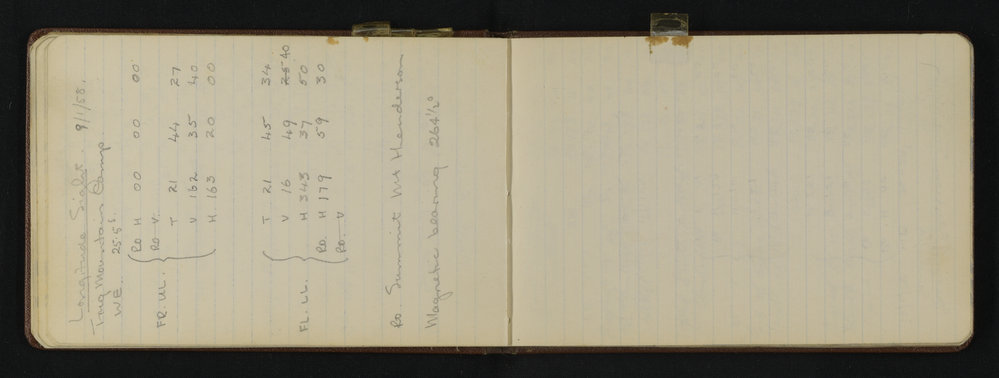 Longitude Sight. 9/1/58.
Tag Mountain Camp.
WE. 25.5 s.
RO H 00 00 00
RO V.
FR. UL. T 21 44 27
V 162 35 40
H 163 20 00
T 21 45 34
V 16 49 25 40
FL. LL. H 343 37 50
RO. H 179 59 30
RO. V
RO. Summit Mt Henderson
Magnetic bearing 264½°